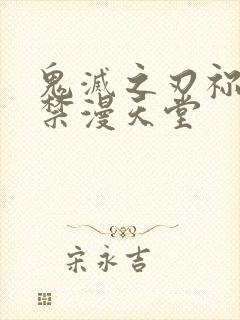 鬼滅之刃祢
禁漫天堂
宋永吉